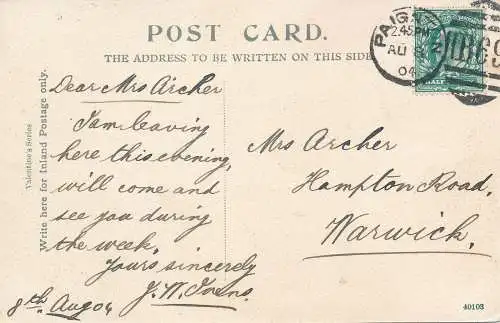 POST CARD.
THE ADDRESS TO BE WRITTEN ON THIS SIDE
Valentine's Series
Write here for Inland Postage only.
Dear Mrs Archer
I am leaving
here this evening,
will come and
see you during
the week,
Yours sincerely
J. W.
8th Aug 04
Mrs Archer
Hampton Road,
Warwick.
PAIG
2.45PM
AU 8
04
HALF
40103